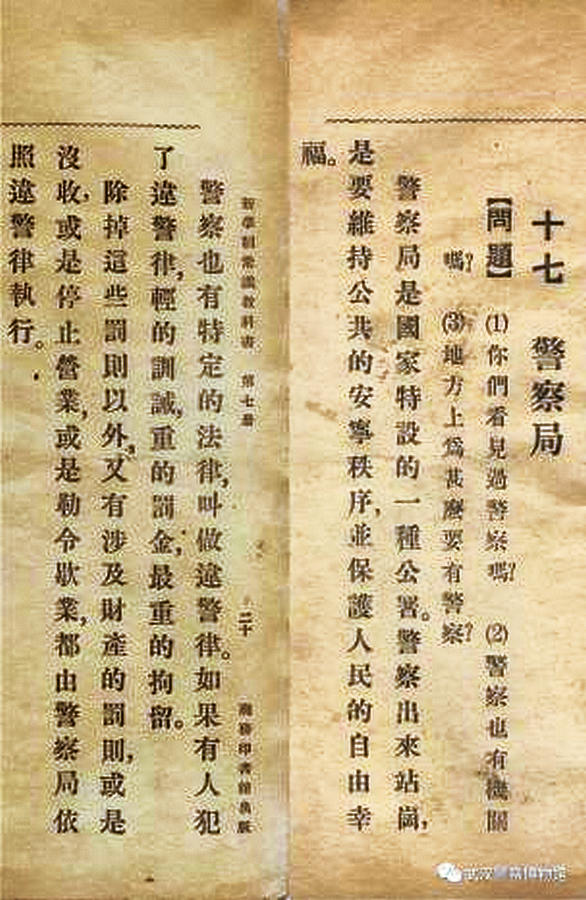 十七 警察局
【問題】 ⑴你們看見過警察嗎? ⑵警察也有機關
嗎? ⑶地方上爲甚麼要有警察?
警察局是國家特設的一種公署。警察出來站崗,
是要維持公共的安寧秩序,並保護人民的自由幸
福。
新學制常識教科書 第七册 二十 商務印書館出版
警察也有特定的法律,叫做違警律。如果有人犯
了違警律,輕的訓誡,重的罰金,最重的拘留。
除掉這些罰則以外,又有涉及財產的罰則,或是
沒收,或是停止營業,或是勒令歇業,都由警察局依
照違警律執行。
武汉警察博物馆